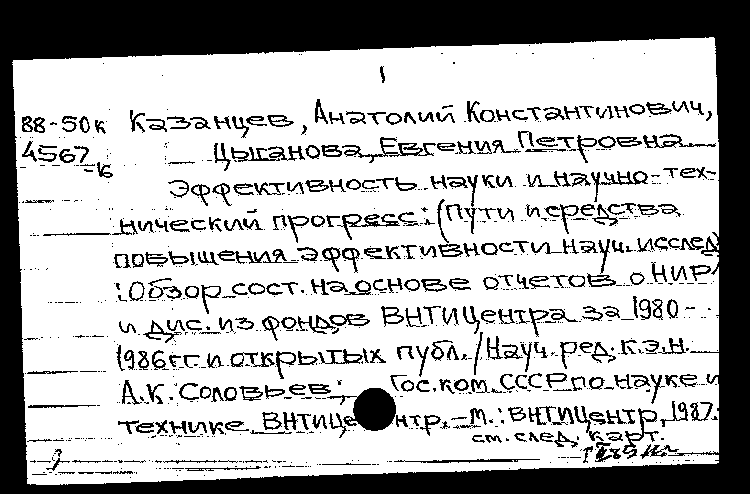 1
88-50к Казанцев, Анатолий Константинович,
4567 Цыганова, Евгения Петровна
-16 Эффективность науки и научно-тех-
нический прогресс: (Пути и средства
повышения эффективности науч. исслед)
: Обзор сост. на основе отчетов о НИР
и дис. из фондов ВНТИЦентра за 1980-
1986 гг и открытых публ. / Науч. ред. к.э.н.
А.К. Соловьев; Гос. ком. СССР по науке и
технике. ВНТИЦентр. - М.: ВНТИЦентр, 1987.
см. след. карт.